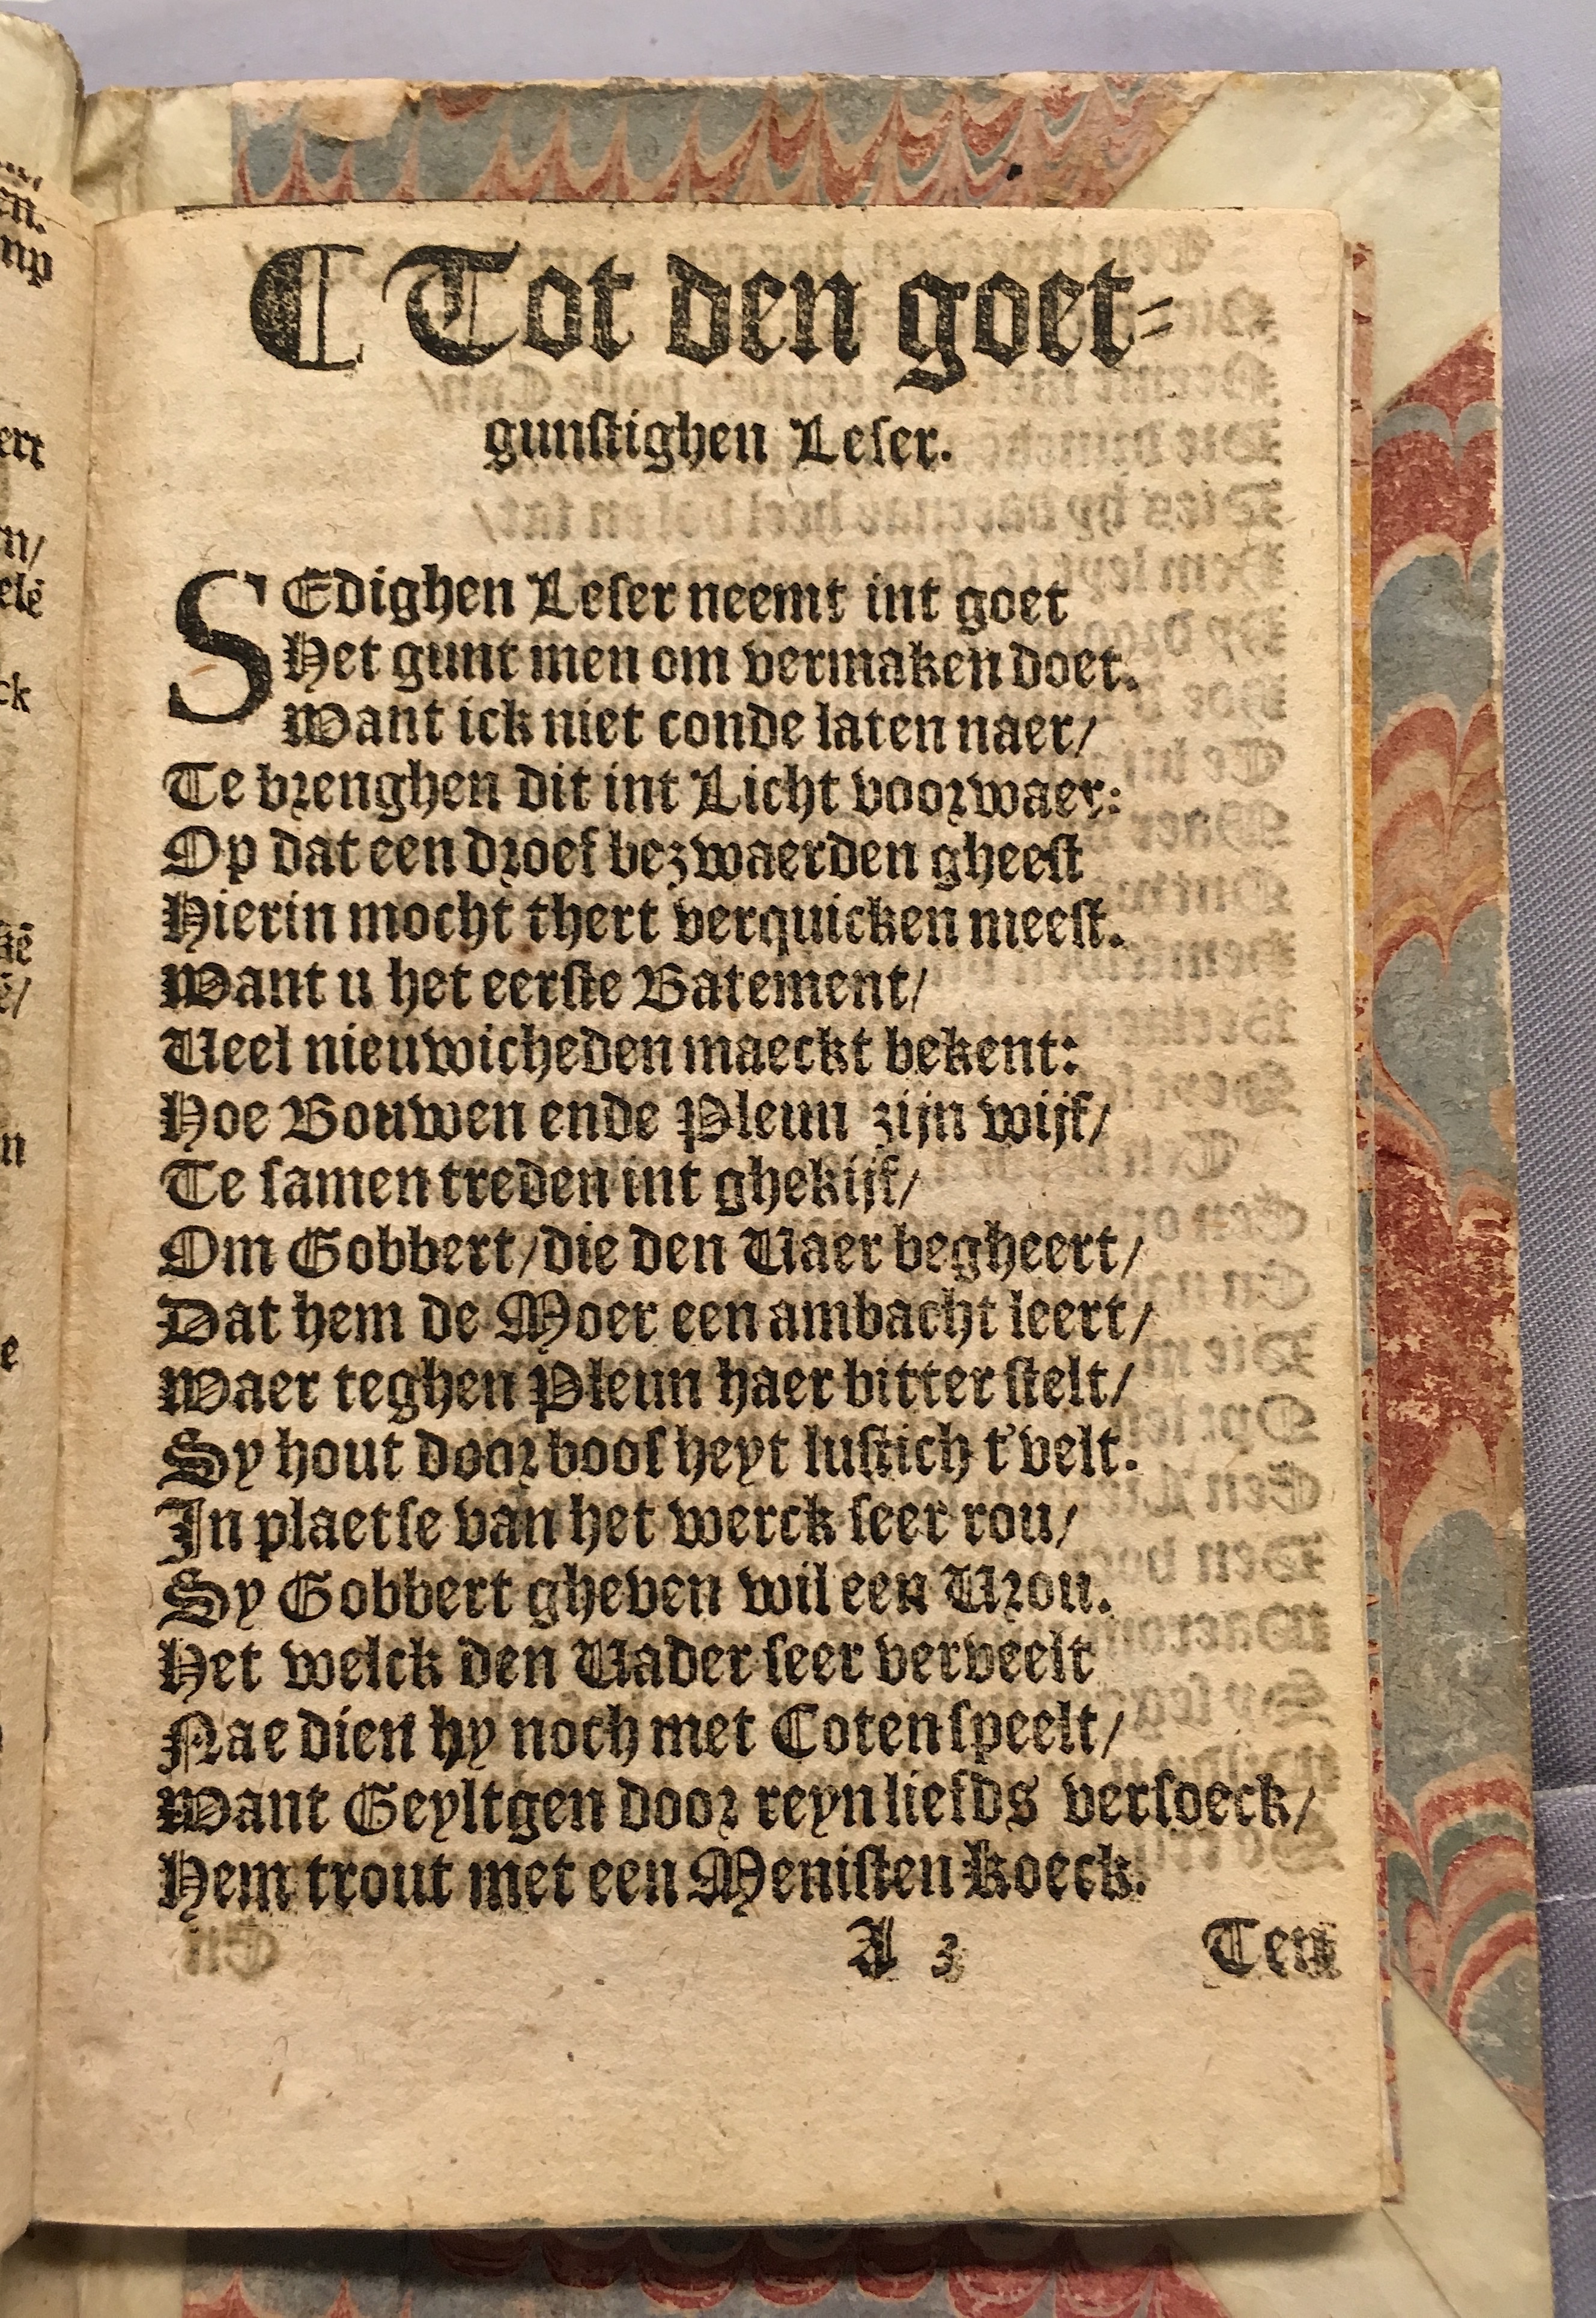 ¶ Tot den goet⸗
gunstighen Leser.
SEdighen Leser neemt int goet
Het gunt men om vermaken doet.
Want ick niet conde laten naer/
Te brenghen dit int Licht voorwaer:
Op dat een droef bezwaerden gheest
Hierin mocht thert verquicken meest.
Want u het eerste Batement/
Veel nieuwicheden maeckt bekent:
Hoe Bouwen ende Pleun zijn wijf/
Te samen treden int ghekijf/
Om Gobbert/die den Vaer begheert/
Dat hem de Moer een ambacht leert/
Waer teghen Pleun haer bitter stelt/
Sy hout door boosheyt lustich t'velt.
In plaetse van het werck seer rou/
Sy Gobbert gheven wil een Vrou.
Het welck den Vader seer verveelt
Nae dien hy noch met Coten speelt/
Want Geyltgen door reyn liefds versoeck/
Hem trout met een Menisten koeck.
A 3 Ten